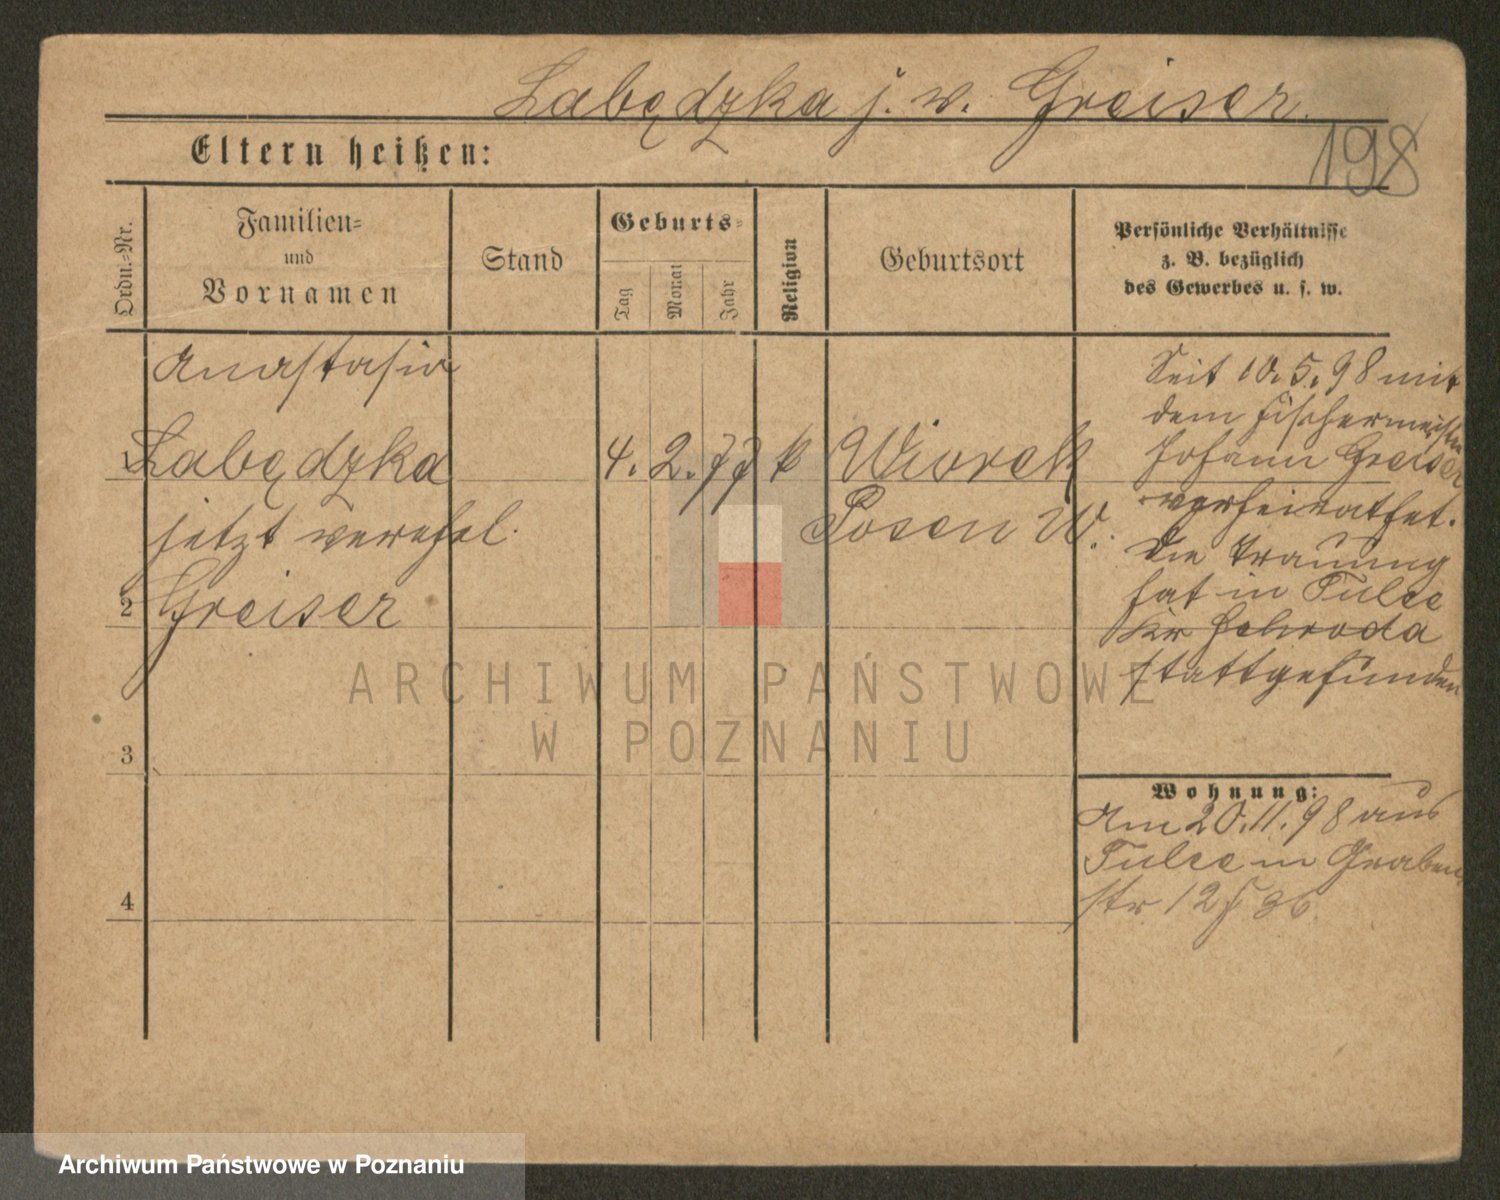 Labędzka j. v. Greiser.
198
Eltern heißen:
Ordn.-Nr.
Familien-
und
Vornamen
Stand
Geburts-
Tag
Monat
Jahr
Religion
Geburtsort
Persönliche Verhältnisse
z. B. bezüglich
des Gewerbes u. s. w.
Anastasia
1 Labędzka 4. 2. 77 k Wiorek
jetzt verehel. Posen W.
2 Greiser
3
4
Seit 10. 5. 98 mit
dem Fischermeister
Johann Greiser
verheirathet.
Die Trauung
hat in Tulce
Kr Schroda
stattgefunden
Wohnung:
Am 20. 11. 98 aus
Tulce in Graben
str. 12
ARCHIWUM PAŃSTWOWE
W POZNANIU
Archiwum Państwowe w Poznaniu